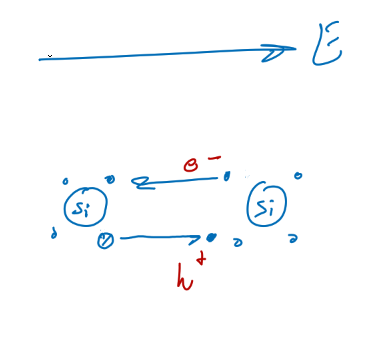 E
e -
Si Si
h +